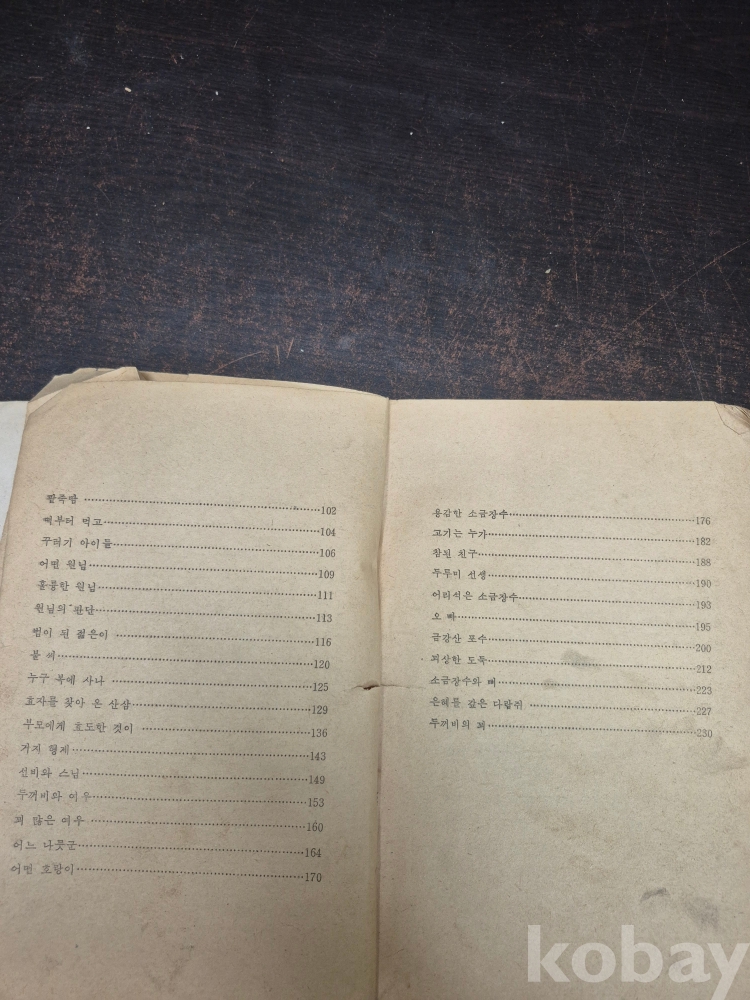 팥죽땀 102
뼈부터 먹고 104
꾸러기 아이들 106
어떤 원님 109
훌륭한 원님 111
원님의 판단 113
범이 된 젊은이 116
불 씨 120
누구 복에 사나 125
효자를 찾아 온 산삼 129
부모에게 효도한 것이 136
거지 형제 143
선비와 스님 149
두꺼비와 여우 153
꾀 많은 여우 160
어느 나뭇군 164
어떤 호랑이 170
용감한 소금장수 176
고기는 누가 182
참된 친구 188
두루미 선생 190
어리석은 소금장수 193
오 빠 195
금강산 포수 200
괴상한 도둑 212
소금장수와 뼈 223
은혜를 갚은 다람쥐 227
두꺼비의 꾀 230
kobay